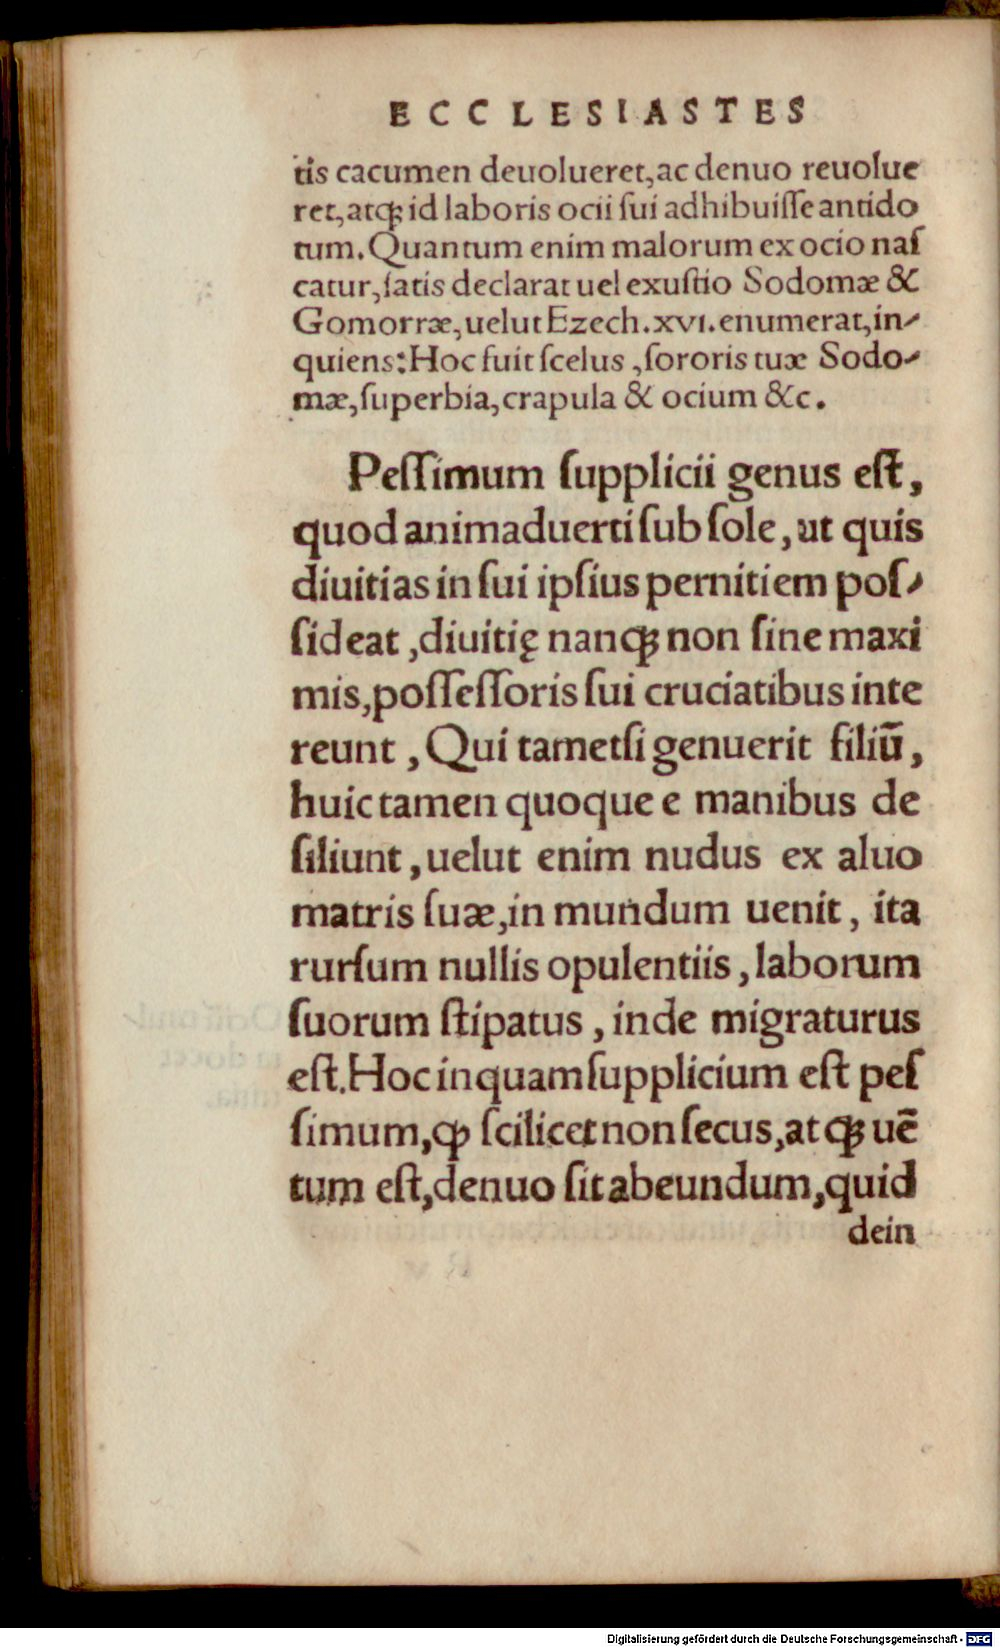 ECCLESIASTES
tis cacumen deuolueret, ac denuo reuolue
ret, atqꝫ id laboris ocii ſui adhibuiſſe antido
tum. Quantum enim malorum ex ocio naſ
catur, ſatis declarat uel exuſtio Sodomæ &
Gomorræ, uelut Ezech. xvı. enumerat, in-
quiens: Hoc fuit ſcelus, ſororis tuæ Sodo-
mæ, ſuperbia, crapula & ocium &c.
Peſſimum ſupplicii genus eſt,
quod animaduerti ſub ſole, ut quis
diuitias in ſui ipſius pernitiem poſ-
ſideat, diuitię nanqꝫ non ſine maxi
mis, poſſeſſoris ſui cruciatibus inte
reunt, Qui tametſi genuerit filiū,
huic tamen quoque e manibus de
ſiliunt, uelut enim nudus ex aluo
matris ſuæ, in mundum uenit, ita
rurſum nullis opulentiis, laborum
ſuorum ſtipatus, inde migraturus
eſt. Hoc inquam ſupplicium eſt peſ
ſimum, ꝙ ſcilicet non ſecus, atqꝫ uē
tum eſt, denuo ſit abeundum, quid
dein
Digitalisierung gefördert durch die Deutsche Forschungsgemeinschaft - DFG